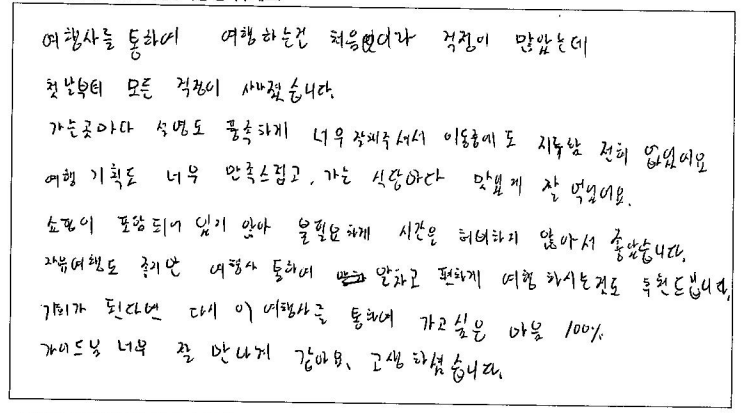 여행사를 통하여 여행하는건 처음이다라 걱정이 많았는데
첫날부터 모든 걱정이 사라졌습니다.
가는곳마다 설명도 풍족하게 너무 잘해주셔서 이동중에도 지루함 전혀 없었어요
여행 기획도 너무 만족스럽고, 가는 식당마다 맛있게 잘 먹었어요.
쇼핑이 포함되어 있지 않아 불필요하게 시간은 허비하지 않아서 좋았습니다.
자유여행도 좋지만 여행사 통하여 알차고 편하게 여행 하시는것도 추천드립니다.
기회가 된다면 다시 이 여행사를 통하여 가고싶은 마음 100%
가이드님 너무 잘 만난거 같아요. 고생하셨습니다.